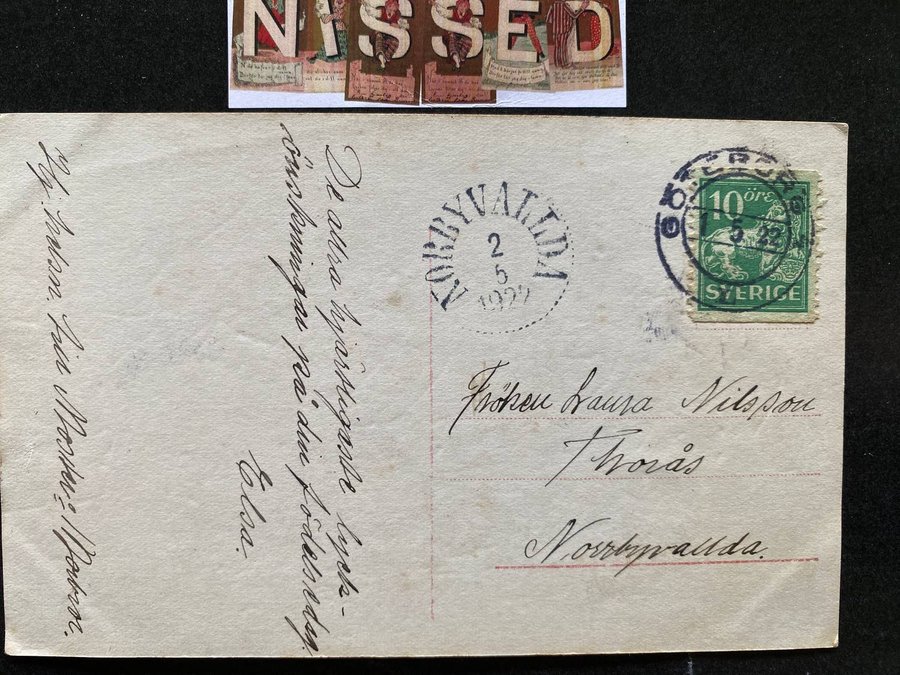 NISSED
De allra hjärtligaste lyck-
önskningar på din födelsedag.
Elsa.
Hj. hälsn. till Moster o Morbror.
NORBYVALLDA
2
5
1922
GÖTEBORG
1 5 22
10 öre
SVERIGE
Fröken Laura Nilsson
Thorås
Norrbyvallda.